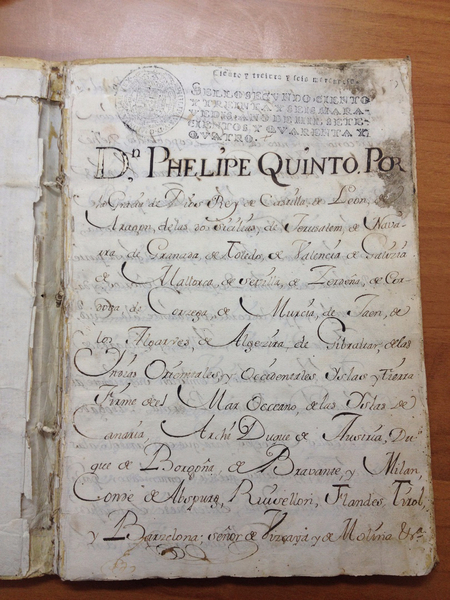 Ciento y treinta y seis maravedis.
SELLO SEGVNDO, CIENTO
Y TREINTA Y SEIS MARA-
VEDIS, AÑO DE MIL, SETE-
CIENTOS, Y QVARENTA Y
QVATRO.
Dn PHELIPE QUINTO, POR
la Gracia de Dios Rey de Castilla, de Leon, de
Aragon, de las dos Sicilias, de Jerusalem, de Nava
rra, de Granada, de Toledo, de Valencia, de Galicia
de Mallorca, de Sevilla, de Zerdeña, de Cor
dova, de Corzega, de Murcia, de Jaen, de
los Algarves, de Algezira, de Gibraltar, de las
Yndias Orientales, y Occidentales, Yslas, y Tierra
Firme del Mar Occeano, de las Yslas de
Canaria, Archi Duque de Austria, Du
que de Borgoña, de Bravante, y Milan,
Conde de Abspurg, Ruisellon, Flandes, Tirol,
y Barzelona; señor de Vizcaya, y de Molina &ca